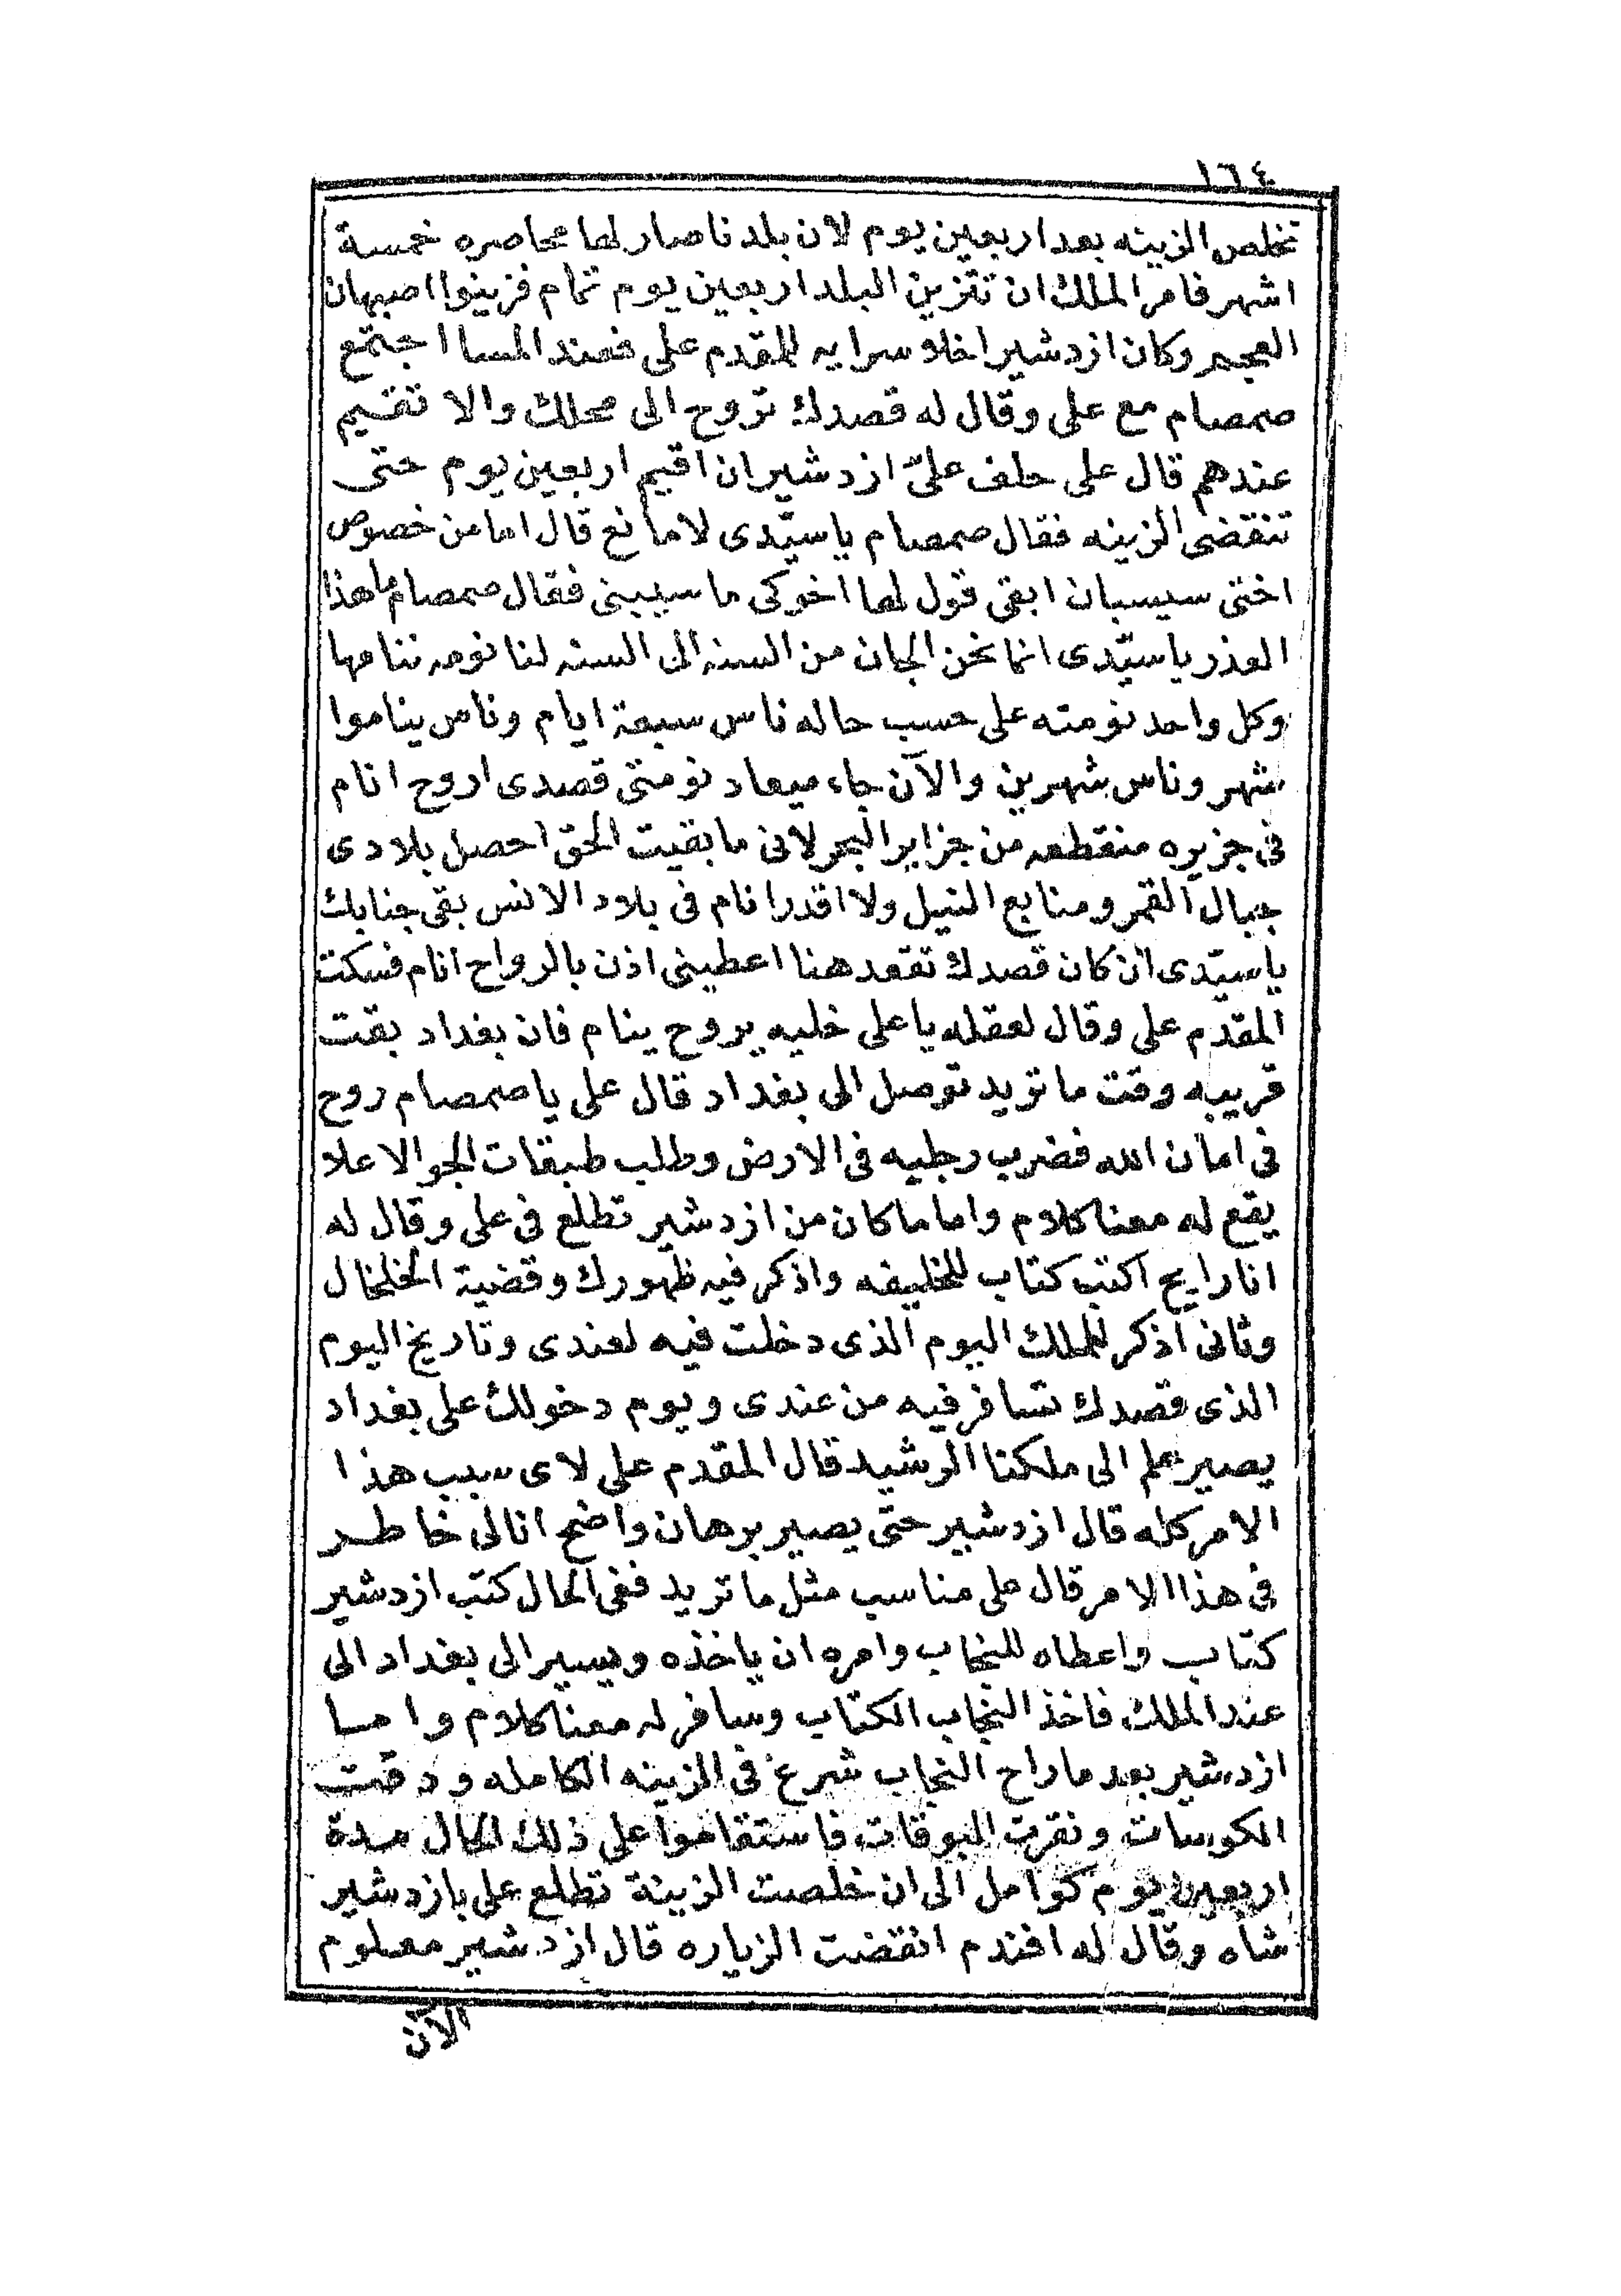 ١٦٤
تخلص الزينه بعد اربعين يوم لان بلدنا صار لها محاصره خمسة
اشهر فامر الملك ان تتزين البلد اربعين يوم تمام فزينوا اصبهان
العجم وكان ازدشير اخلا سرايه للمقدم على فعند المسا اجتمع
صمصام مع على وقال له قصدك تروح الى محلك والا تقيم
عندهم قال على حلف علىّ ازدشير ان اقيم اربعين يوم حتى
تنقضى الزينه فقال صمصام ياسيّدى لامانع قال اما من خصوص
اختى سيسبان ابقى قول لها اخوكى ما سيبنى فقال صمصام ما هذا
العذر ياسيّدى انما نحن الجان من السنه الى السنه لنا نومه ننامها
وكل واحد نومته على حسب حاله ناس سبعة ايام وناس يناموا
شهر وناس شهرين والآن جاء ميعاد نومتى قصدى اروح انام
فى جزيره منقطعه من جزاير البحر لانى ما بقيت الحق احصل بلادى
جبال القمر ومنابع النيل ولا اقدر انام فى بلاد الانس بقى جنابك
ياسيّدى ان كان قصدك تقعد هنا اعطينى اذن بالرواح انام فسكت
المقدم على وقال لعقله ياعلى خليه يروح ينام فان بغداد بقت
قريبه وقت ما تريد توصل الى بغداد قال على يا صمصام روح
فى امان الله فضرب رجليه فى الارض وطلب طبقات الجو الاعلا
يقع له معنا كلام واما ماكان من ازدشير تطلع فى على وقال له
انا رايح اكتب كتاب للخليفه واذكر فيه ظهورك وقضية الخلخال
وثانى اذكر للملك اليوم الذى دخلت فيه لعندى وتاريخ اليوم
الذى قصدك تسافر فيه من عندى ويوم دخولك على بغداد
يصير علم الى ملكنا الرشيد قال المقدم على لاى سبب هذا
الامر كله قال ازدشير حتى يصير برهان واضح انا لى خاطر
فى هذا الامر قال على مناسب مثل ما تريد ففى الحال كتب ازدشير
كتاب واعطاه للنجاب وامره ان ياخذه ويسير الى بغداد الى
عند الملك فاخذ النجاب الكتاب وسافر له معنا كلام واما
ازدشير بعد ما راح النجاب شرع فى الزينه الكامله ودقت
الكوسات ونقرت البوقات فاستقاموا على ذلك الحال مدة
اربعين يوم كوامل الى ان خلصت الزينة تطلع على بازدشير
شاه وقال له افندم انقضت الزياره قال ازدشير معلوم
الآن